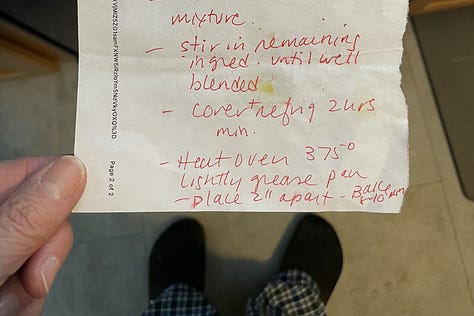 mixture.
- stir in remaining
ingred. until well
blended
- cover + refrig 2 hrs
min.
- Heat oven 375°
lightly grease pan
- place 2" apart - Bake
8-10 min
Page 2 of 2